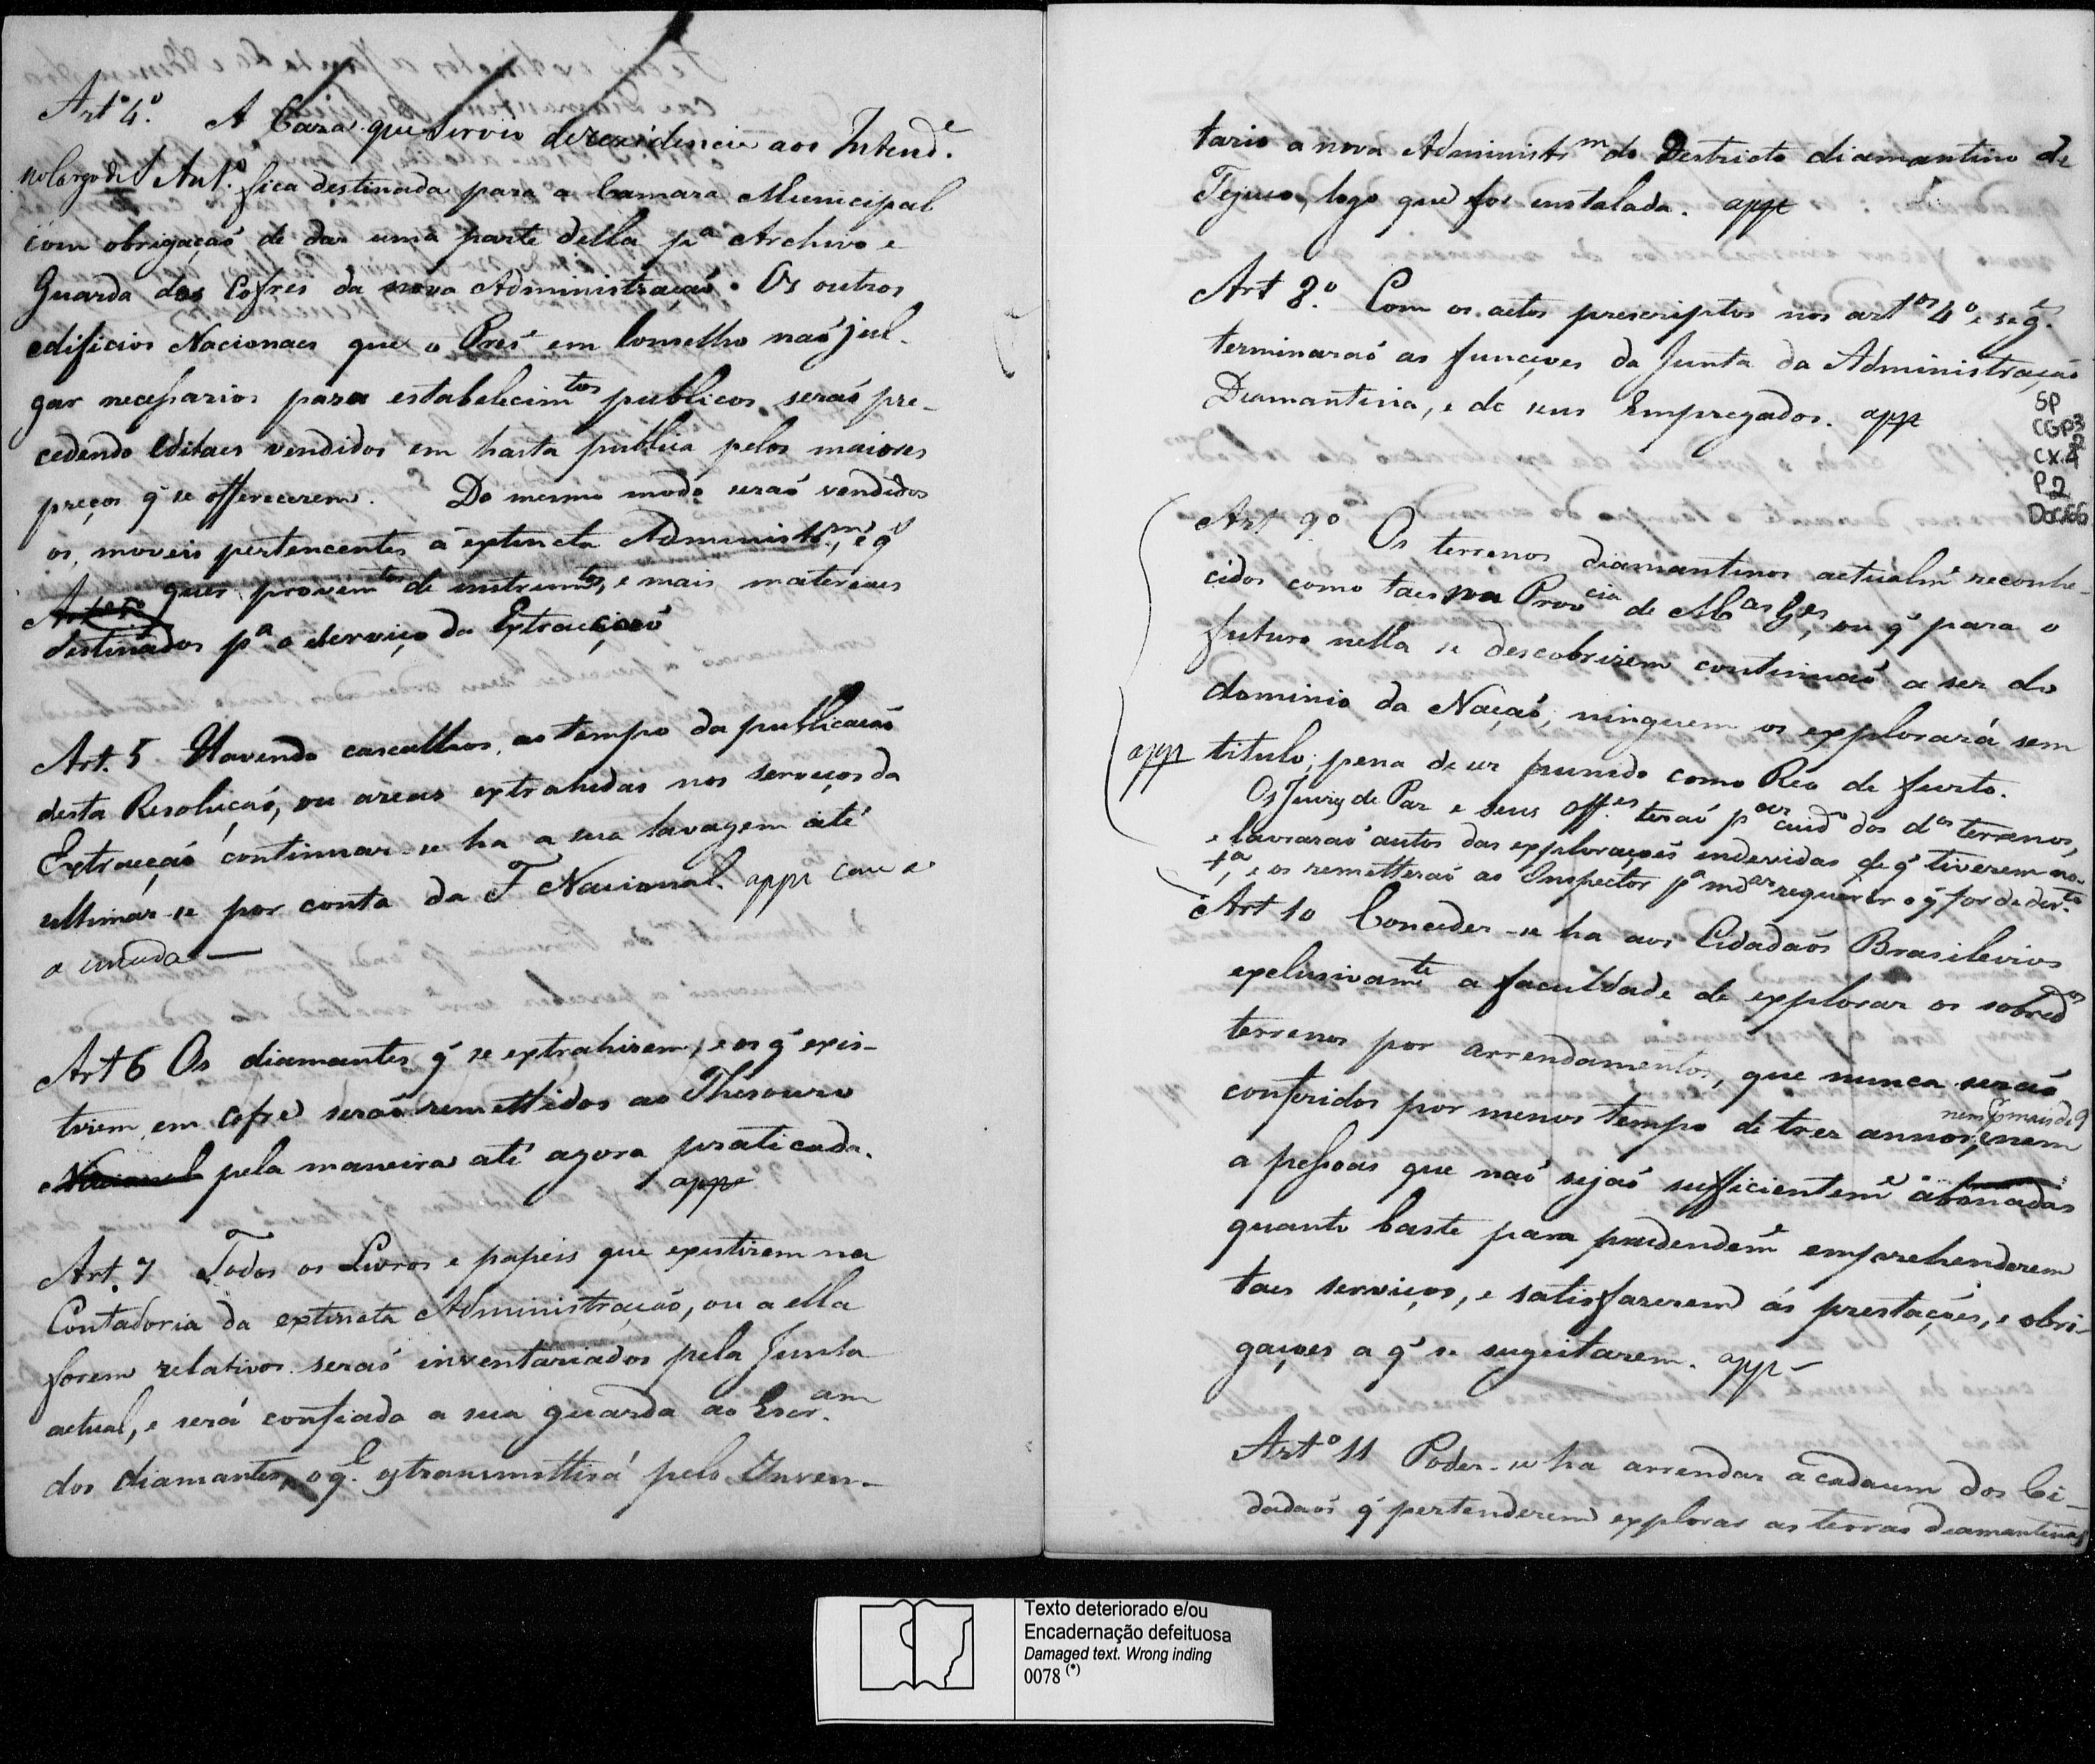 Art.º 4.º A Caza que servio de rezidencia aos Intend.e
no Largo de S Ant.º fica destinada para a Camara Municipal
com obrigaçaõ de dar uma parte della pª Archivo e
Guarda dos Cofres da nova Administraçaõ. Os outros
edificios Nacionaes que o Pres em Conselho naõ jul-
gar necessarios para estabelecimtos publicos seraõ pre-
cedendo Editaes vendidos em hasta publica pelos maiores
preços q̃ se offerecerem. Do mesmo modo seraõ vendidos
os moveis pertencentes á extincta Administrm, e q
Artº 5º quer provemtos de instrumtos, e mais materiaes
destinados pª o serviço da Extracçaõ
Art. 5 Havendo cascalhos, ao tempo da publicaçaõ
desta Resoluçaõ, ou areas extrahidas nos serviços da
Extracçaõ continuar-se ha a sua lavagem até
ultimar-se por conta da F Nacional. app com a
a emenda —
Art 6 Os diamantes q̃ se extrahirem, e os q̃ exis-
tirem em cofre seraõ remettidos ao Thesouro
Nacional pela maneira até agora praticada.
app
Art. 7 Todos os Livros e papeis que existirem na
Contadoria da extincta Administraçaõ, ou a ella
forem relativos seraõ inventariados pela Junta
actual, e será confiada a sua guarda ao Escr.am
dos diamantes, o q.l os transmittirá pelo Inven-
tario á nova Administrm do Destricto diamantino de
Tejuco, logo que for enstalada. app
Art 8.º Com os actos prescriptos nos artos 4º e seg.e
terminaraõ as funcções da Junta da Administraçaõ
Diamantina, e de seus Empregados. app
SP
CGP3
CX.4
P2
Doc.66
Art. 9º Os terrenos diamantinos actualm.e reconhe-
cidos como taes na Provcia de Mas Ges, ou q̃ para o
futuro nella se descobrirem continuaõ a ser do
dominio da Naçaõ; ninguem os explorará sem
app titulo; pena de ser punido como Reo de furto.
Os Juizes de Paz e seus Offes teraõ por cuido dos dos terrenos,
e lavraraõ autos das exploraçoẽs endevidas de q̃ tiverem no-
tª, e os remetteraõ ao Inspector pª mdar requerer o q̃ for de dirto.
Art 10 Conceder-se ha aos Cidadaõs Brasileiros
exclusivamte a faculdade de explorar os sobredos
terrenos por arrendamentos, que nunca seraõ
conferidos por menos tempo de tres annos, nem
nem p mais de 9
a pessoas que naõ sejaõ sufficienteme abonadas
quanto baste para prudendeme emprehenderem
taes serviços, e satisfazerem ás prestações, e obri-
gações a q̃ se sugeitarem. app
Artº 11 Poder-se ha arrendar a cada um dos Ci-
dadaõs q̃ pertenderem explorar as terras diamantinas
Texto deteriorado e/ou
Encadernação defeituosa
Damaged text. Wrong inding
0078 (*)